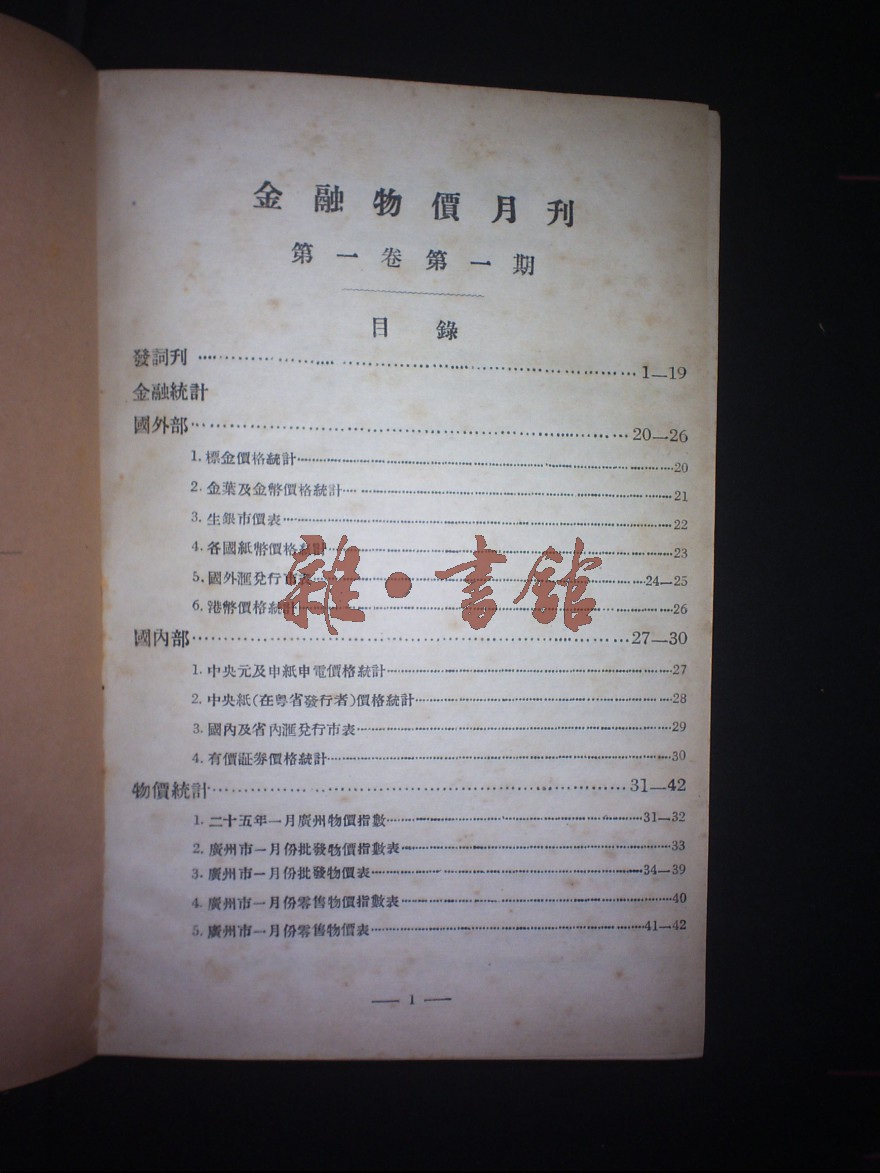 金融物價月刊
第一卷第一期
目錄
發詞刊 1—19
金融統計
國外部 20—26
1. 標金價格統計 20
2. 金葉及金幣價格統計 21
3. 生銀市價表 22
4. 各國紙幣價格統計 23
5. 國外滙兌行市表 24—25
6. 港幣價格統計 26
國內部 27—30
1. 中央元及申紙申電價格統計 27
2. 中央紙(在粵省發行者)價格統計 28
3. 國內及省內滙兌行市表 29
4. 有價証券價格統計 30
物價統計 31—42
1. 二十五年一月廣州物價指數 31—32
2. 廣州市一月份批發物價指數表 33
3. 廣州市一月份批發物價表 34—39
4. 廣州市一月份零售物價指數表 40
5. 廣州市一月份零售物價表 41—42
— 1 —
雜·書館